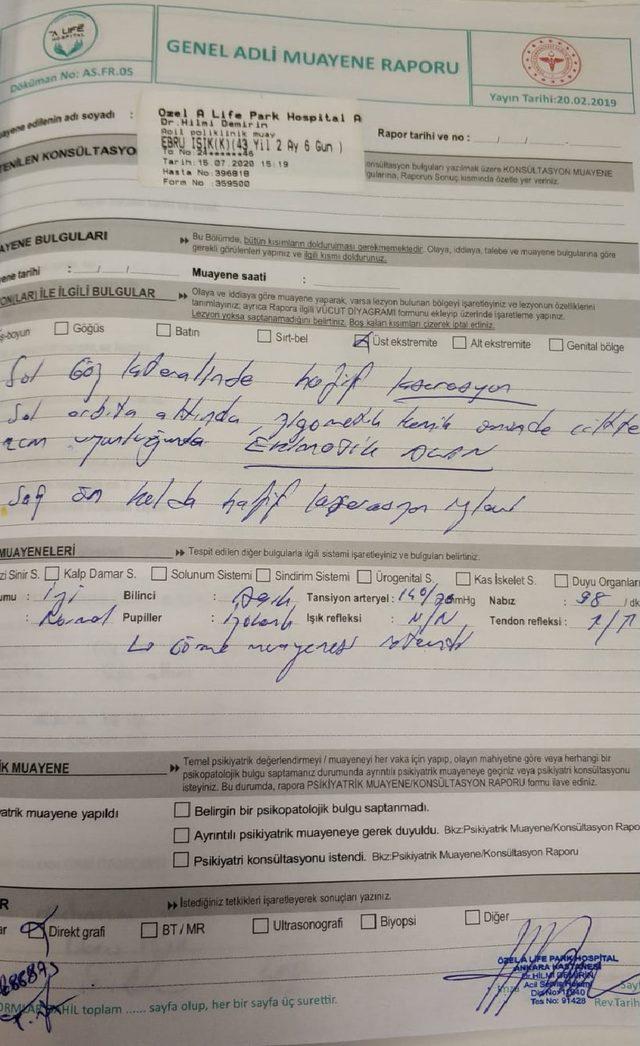 A LIFE
HOSPITAL
GENEL ADLİ MUAYENE RAPORU
Döküman No: AS.FR.05
Yayın Tarihi:20.02.2019
ayene edilenin adı soyadı :
Ozel A Life Park Hospital A
Dr.Hilmi Demirin
Acil poliklinik muay
EBRU IŞIK(K)(43 Yil 2 Ay 6 Gun )
Tarih:15.07.2020 15:19
Hasta No:396818
Form No :359500
Rapor tarihi ve no : / /
TENİLEN KONSÜLTASYO
onsültasyon bulguları yazılmak üzere KONSÜLTASYON MUAYENE
gularına, Raporun Sonuç kısmında özetle yer veriniz.
AYENE BULGULARI
Bu Bölümde, bütün kısımların doldurulması gerekmemektedir. Olaya, iddiaya, talebe ve muayene bulgularına göre
gerekli görülenleri yapınız ve ilgili kısmı doldurunuz.
ene tarihi : / / Muayene saati :
ON(LAR) İLE İLGİLİ BULGULAR
Olaya ve iddiaya göre muayene yaparak, varsa lezyon bulunan bölgeyi işaretleyiniz ve lezyonun özelliklerini
tanımlayınız; ayrıca Rapora ilgili VÜCUT DİYAGRAMI formunu ekleyip üzerinde işaretleme yapınız.
Lezyon yoksa saptanamadığını belirtiniz. Boş kalan kısımları çizerek iptal ediniz.
ş-boyun Göğüs Batın Sırt-bel Üst ekstremite Alt ekstremite Genital bölge
Sol Göz lateralinde hafif laserasyon
Sol orbita altında zigomatik kemik önünde ciltte
uyunluğunda Ekimotik
Sağ ön kolda hafif laserasyon
MUAYENELERİ
Tespit edilen diğer bulgularla ilgili sistemi işaretleyiniz ve bulguları belirtiniz.
zi Sinir S. Kalp Damar S. Solunum Sistemi Sindirim Sistemi Ürogenital S. Kas İskelet S. Duyu Organları
umu : İyi Bilinci : Açık Tansiyon arteryel : 140/70 mmHg Nabız : 98 / dk
: Normal Pupiller : İzokorik Işık refleksi : N/N Tendon refleksi :
Görme muayenesi
İK MUAYENE
Temel psikiyatrik değerlendirmeyi / muayeneyi her vaka için yapıp, olayın mahiyetine göre veya herhangi bir
psikopatolojik bulgu saptamanız durumunda ayrıntılı psikiyatrik muayeneye geçiniz veya psikiyatri konsültasyonu
isteyiniz. Bu durumda, rapora PSİKİYATRİK MUAYENE/KONSÜLTASYON RAPORU formu ilave ediniz.
yatrik muayene yapıldı
Belirgin bir psikopatolojik bulgu saptanmadı.
Ayrıntılı psikiyatrik muayeneye gerek duyuldu. Bkz:Psikiyatrik Muayene/Konsültasyon Rapo
Psikiyatri konsültasyonu istendi. Bkz:Psikiyatrik Muayene/Konsültasyon Raporu
R
İstediğiniz tetkikleri işaretleyerek sonuçları yazınız.
ar Direkt grafi BT / MR Ultrasonografi Biyopsi Diğer
ÖZEL A LİFE PARK HOSPITAL
ANKARA HASTANESİ
Dr.HİLMİ DEMİRİN
Acil Servis Hekimi
Dip No: 11940
Tes No: 91428
İmza
Sayf
HİL toplam ...... sayfa olup, her bir sayfa üç surettir.
Rev.Tarih